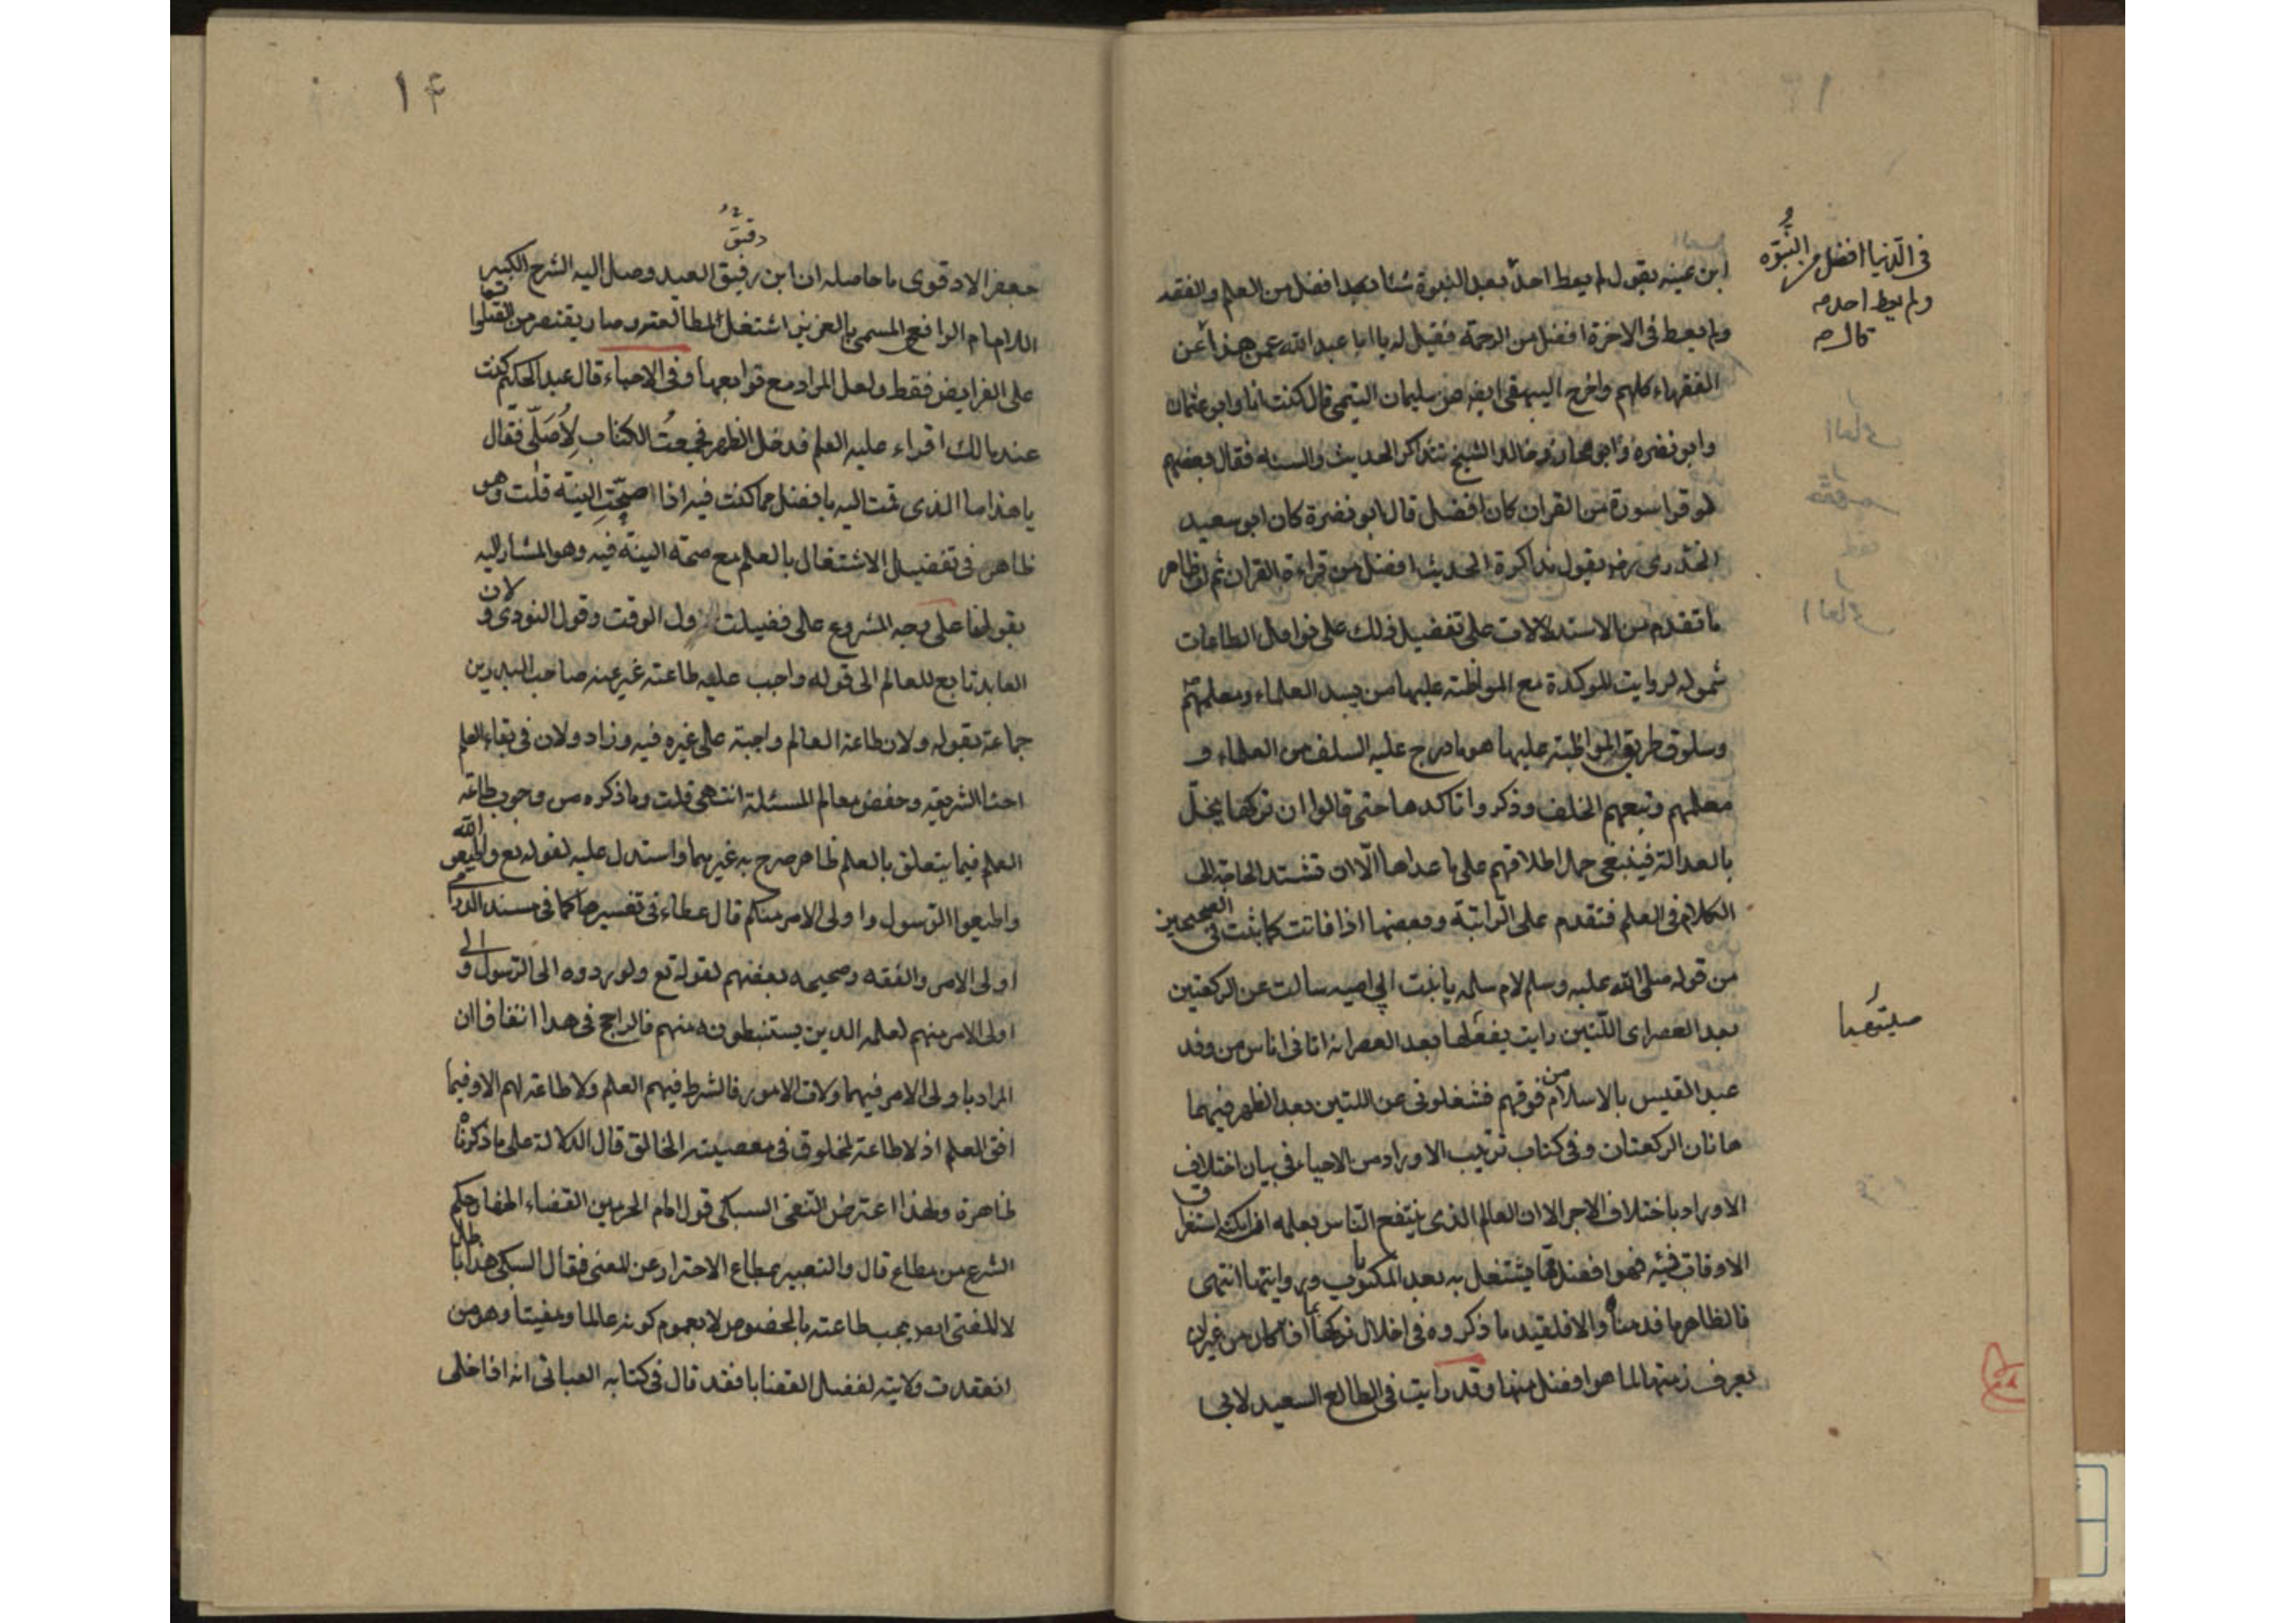 في الدنيا افضل من النبوة
ولم يعط احد
قال
ابن عيينه يقول لم يعط احدٌ بعد النبوة شئا بعد افضل من العلم والفقه
ولم يعط فى الاخرة افضل من الرحمة فقيل له يا ابا عبد الله عمن هذا عن
الفقهاء كلهم واخرج البيهقى ايضه عن سليمان التيمى قال كنت انا وابو عثمان
وابو نضره وابو مجلز وخالد الشبخ نتذاكر الحديث والسنه فقال بعضهم
لو قرا سورة من القران كان افضل قال ابو نضرة كان ابو سعيد
الخدرى رضـ يقول مذاكرة الحديث افضل من قراءة القران ثم ان ظاهر
ما تقدم من الاستدلالات على تفضيل ذلك على نوافل الطاعات
شموله لروايت الموكدة مع المواظبته عليها من يسد العلماء ومعلمهم
وسلوق طريق المواظبته عليها هو ما درج عليه السلف من العلماء و
معلمهم وتبعهم الخلف وذكروا تاكدها حتى قالوا ان تركها يخلّ
بالعدالة فينبغى حمل اطلاقهم على ما عداها الّا ان تشتد الحاجة الى
الكلام فى العلم فتقدم على الراتبة وبعضها اذا فاتت كما ثبت فى الصحيحين
من قوله صلى الله عليه وسلم لام سلمه يا بنت ابى اميه سالت عن الركعتين
بعد العصر اى اللتين رايت يفعلها بعد العصر انه اتانى اناس من وفد
عبد القيس بالاسلام من قوقهم فشغلونى عن اللتين بعد الظهر فيهما
هاتان الركعتان وفى كتاب ترتيب الاوراد من الاحياء فى بيان اختلاف
الاوراد باختلاف الاجر الا ان العالم الذى ينتفع الناس بعلمه اذا امكنه استغراق
الاوقات فيه فهو افضل ما يشتغل به بعد المكتوبات ورواتبها انتهى
فالظاهر ما قدمناه والا فلقيد ما ذكروه فى اخلال تركها بما اذا كان من غير ان
يعرف زمنها لما هو افضل منها وقد رايت فى الطالع السعيد لابى
١۴
دقيق
جعفر الادقوى ما حاصله ان ابن رفيق العيد وصل اليه الشرح الكبير
للامام الرافع المسمى بالعزيز اشتغل بمطالعته وصار يقتصر من الصلوات
على الفرايض فقط ولعل المراد مع توابعها وفى الاحياء قال عبد الحكيم كنت
عند مالك اقراء عليه العلم فدخل الظهر فجمعتُ الكتاب لِاُصَلّى فقال
يا هذا ما الذى قمت اليه بافضل مما كنت فيه اذا صحّتِ النية قلت وهو
ظاهر فى تفضيل الاشتغال بالعلم مع صحة النية فيه وهو المشار اليه
بقولنا على وجه المشروع على فضيلت اول الوقت وقول النووى و لان
العابد تابع للعالم الى قوله واجب عليه طاعته غير عنه صاحب البدرين
جماعة بقوله ولان طاعة العالم واجبة على غيره فيه وزاد ولان فى بقاء العلم
احيا الشريعه وحفض معالم المسئلة انتهى قلت وما ذكره من وجوب طاعة
العلم فيما يتعلق بالعلم ظاهر صرح به غيرهما واستدل عليه لقوله تع واطيعوا الله
واطيعوا الرسول واولى الامر منكم قال عطاء فى تفسيرها كما فى مسند الدارمى
اولى الامر والفقه وصحيحه بعضهم لقوله تع ولو ردوه الى الرسول و الى
اولى الامر منهم لعلمه الدين يستنبطونه منهم فالراجح فى هدا اتفاقا ان
المراد باولى الامر فيهما ولات الامور فالشرط فيهم العلم ولا طاعة لهم الا وفيما
افتى العلم اذ لا طاعة لمخلوق فى معصيته الخالق قال الدلالة على ما ذكرناه
ظاهرة ولهذا اعترض التقى السبكى قول امام الحرمين القضاء اظهار حكم
الشرع من مطاع قال والتعبير بمطاع الاحتراز عن المفتى فقال السبكى هذا باطل
لا للمفتى ايض يجب طاعته بالخصوص لا بعموم كونه عالما ومفيتا وهو من
انعقدت ولايته لفضل القضايا فقد قال فى كتابه الغياثى انه اذا خلى